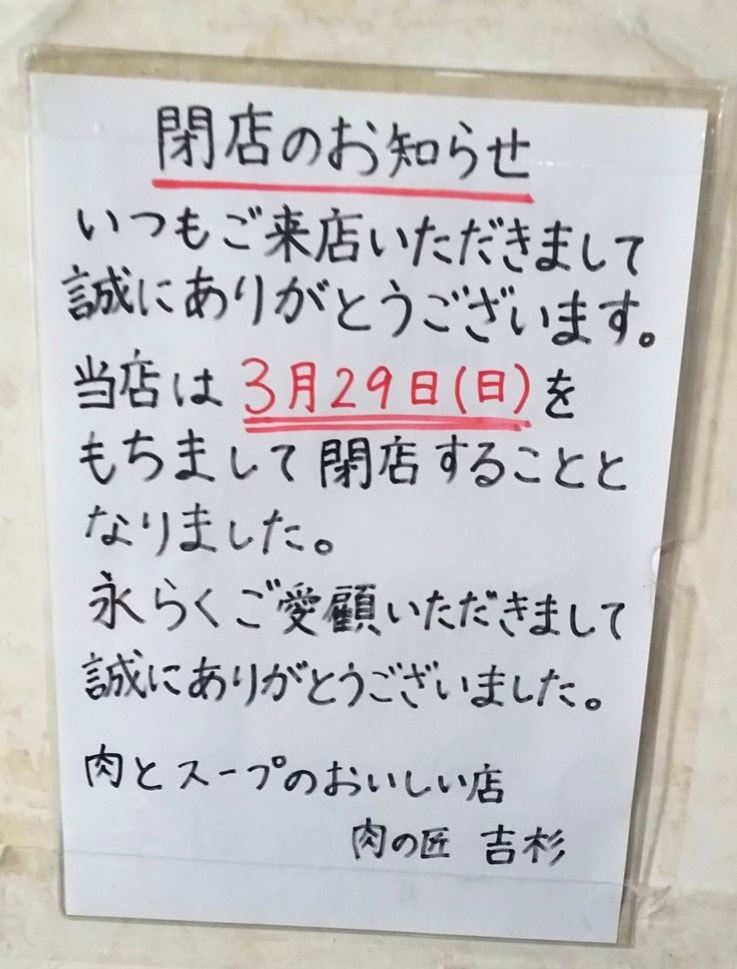 閉店のお知らせ
いつもご来店いただきまして
誠にありがとうございます。
当店は3月29日(日)を
もちまして閉店することと
なりました。
永らくご愛顧いただきまして
誠にありがとうございました。
肉とスープのおいしい店
肉の匠 吉杉